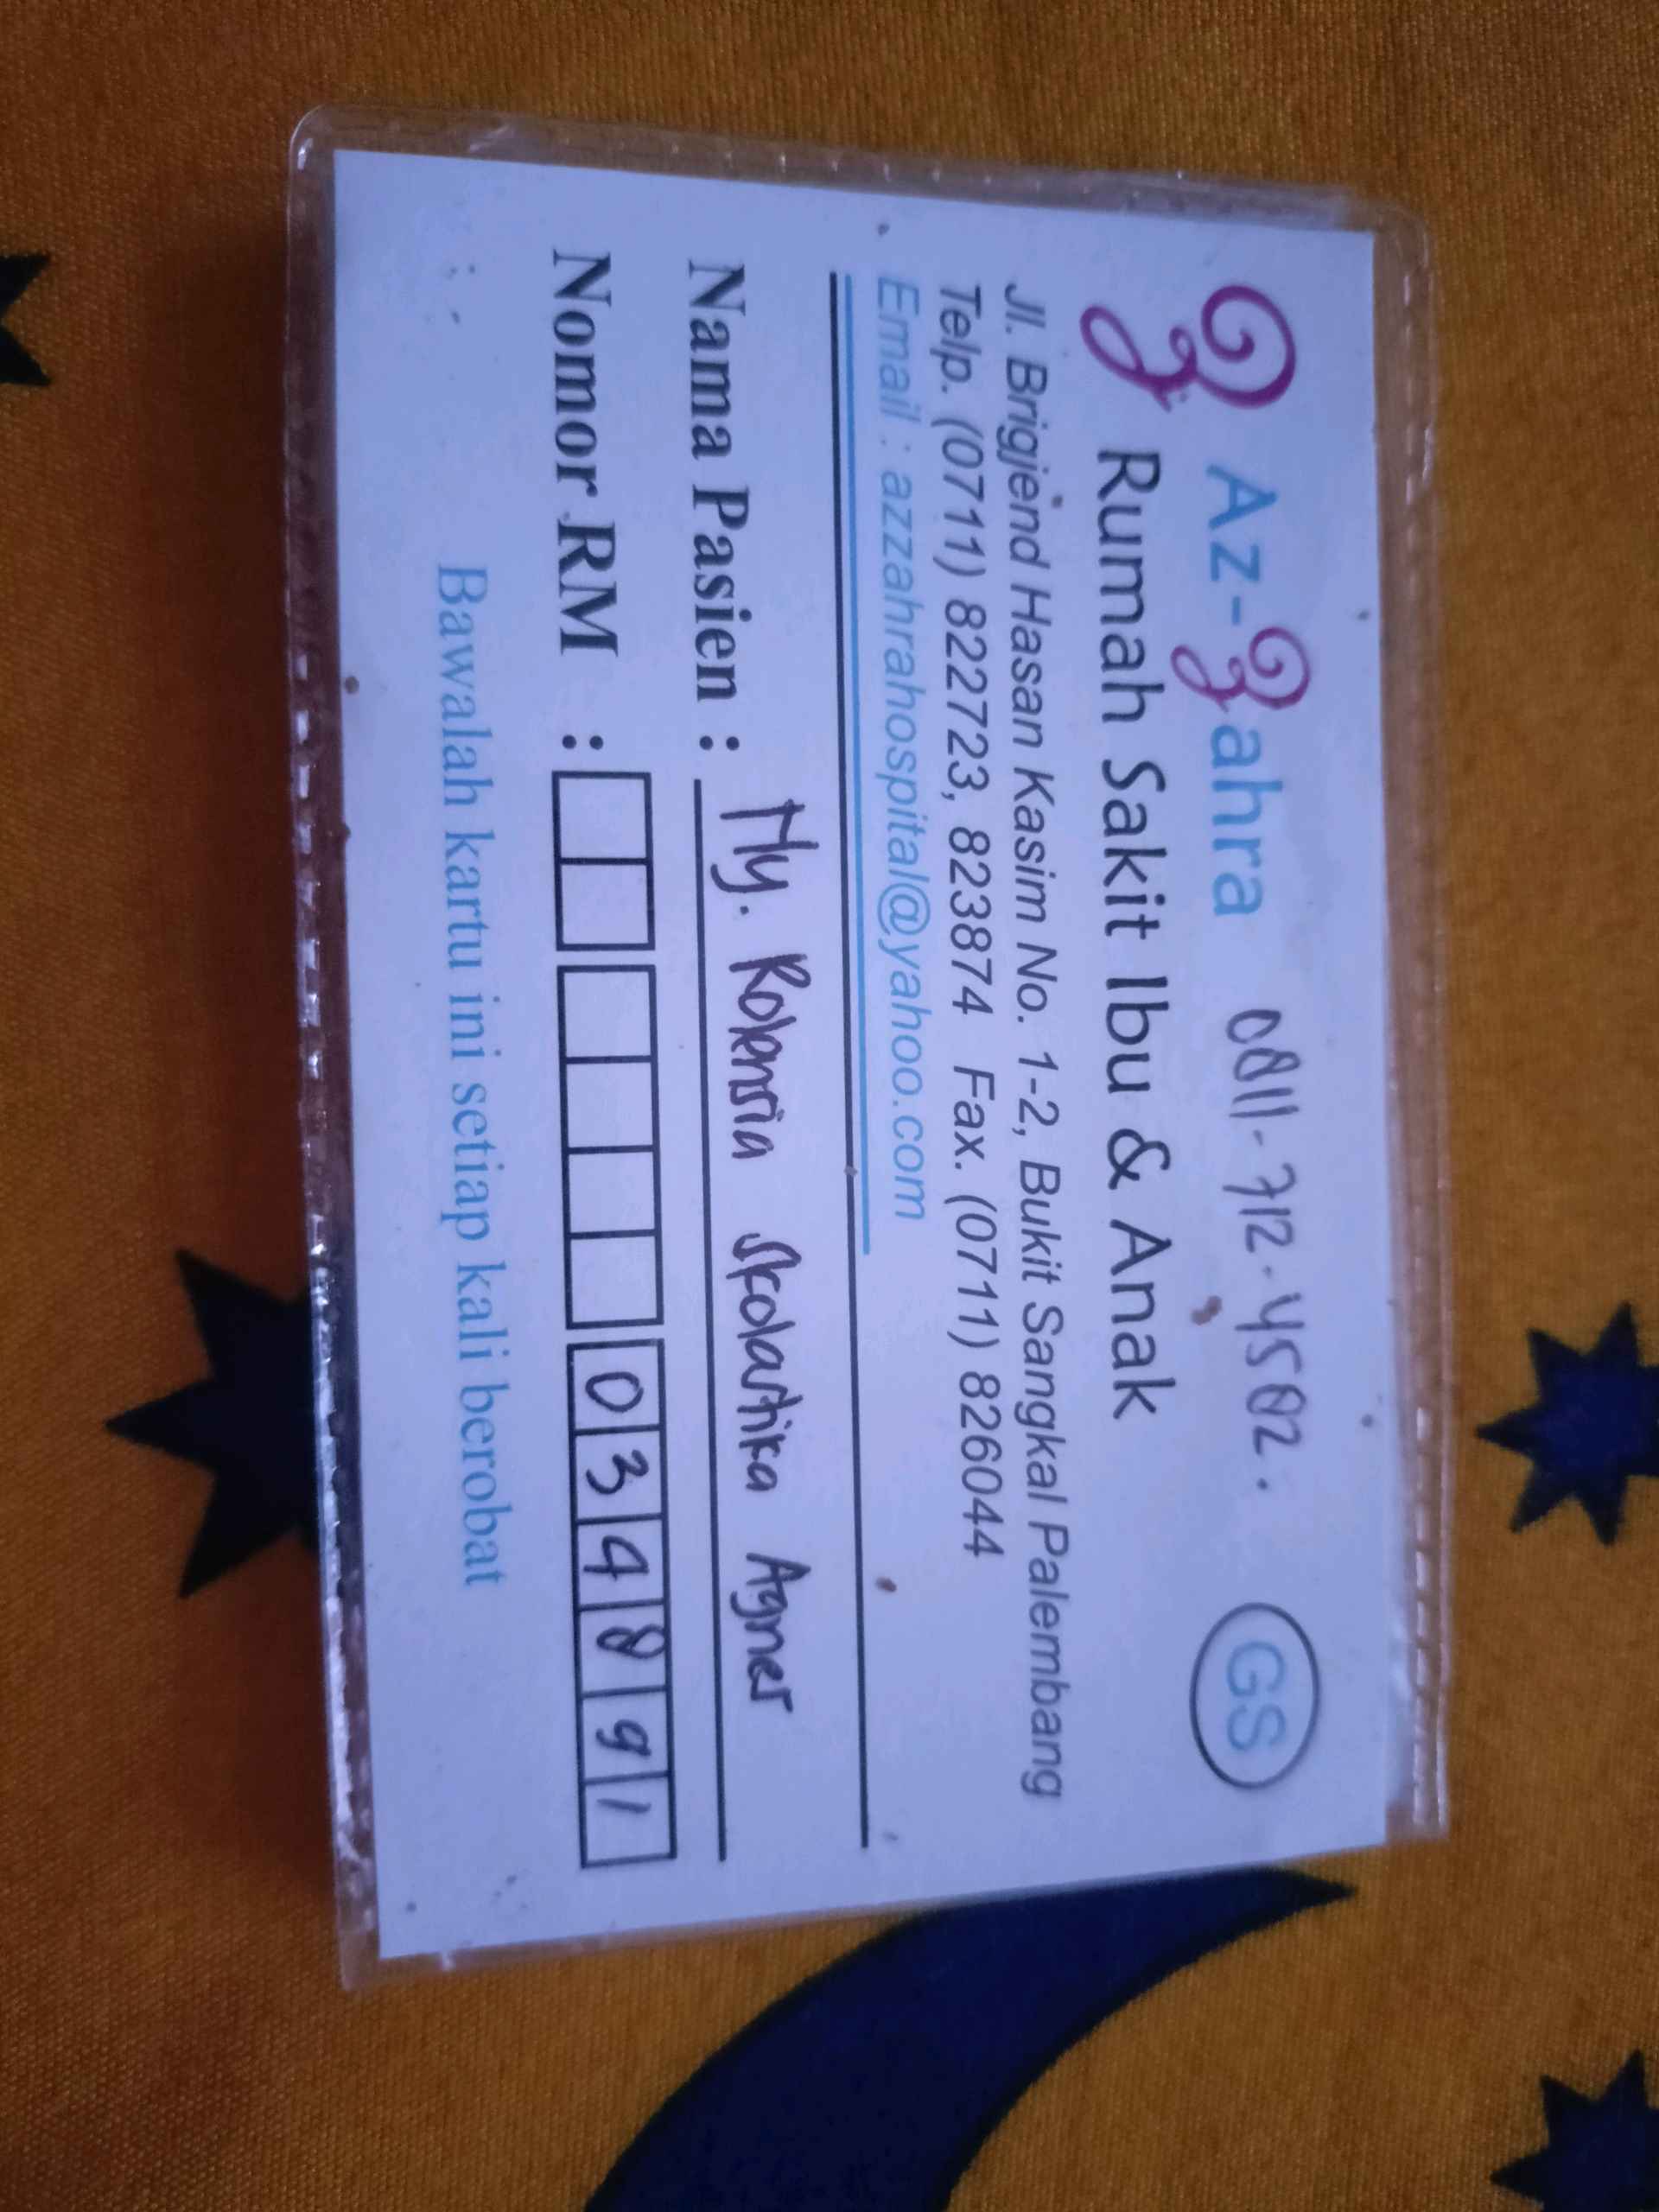 Az-Zahra 0811-712-4502. GS
Rumah Sakit Ibu & Anak
Jl. Brigjend Hasan Kasim No. 1-2, Bukit Sangkal Palembang
Telp. (0711) 822723, 823874 Fax. (0711) 826044
Email : azzahrahospital@yahoo.com
Nama Pasien : Ny. Skolastika Agnes
Nomor RM : 034891
Bawalah kartu ini setiap kali berobat